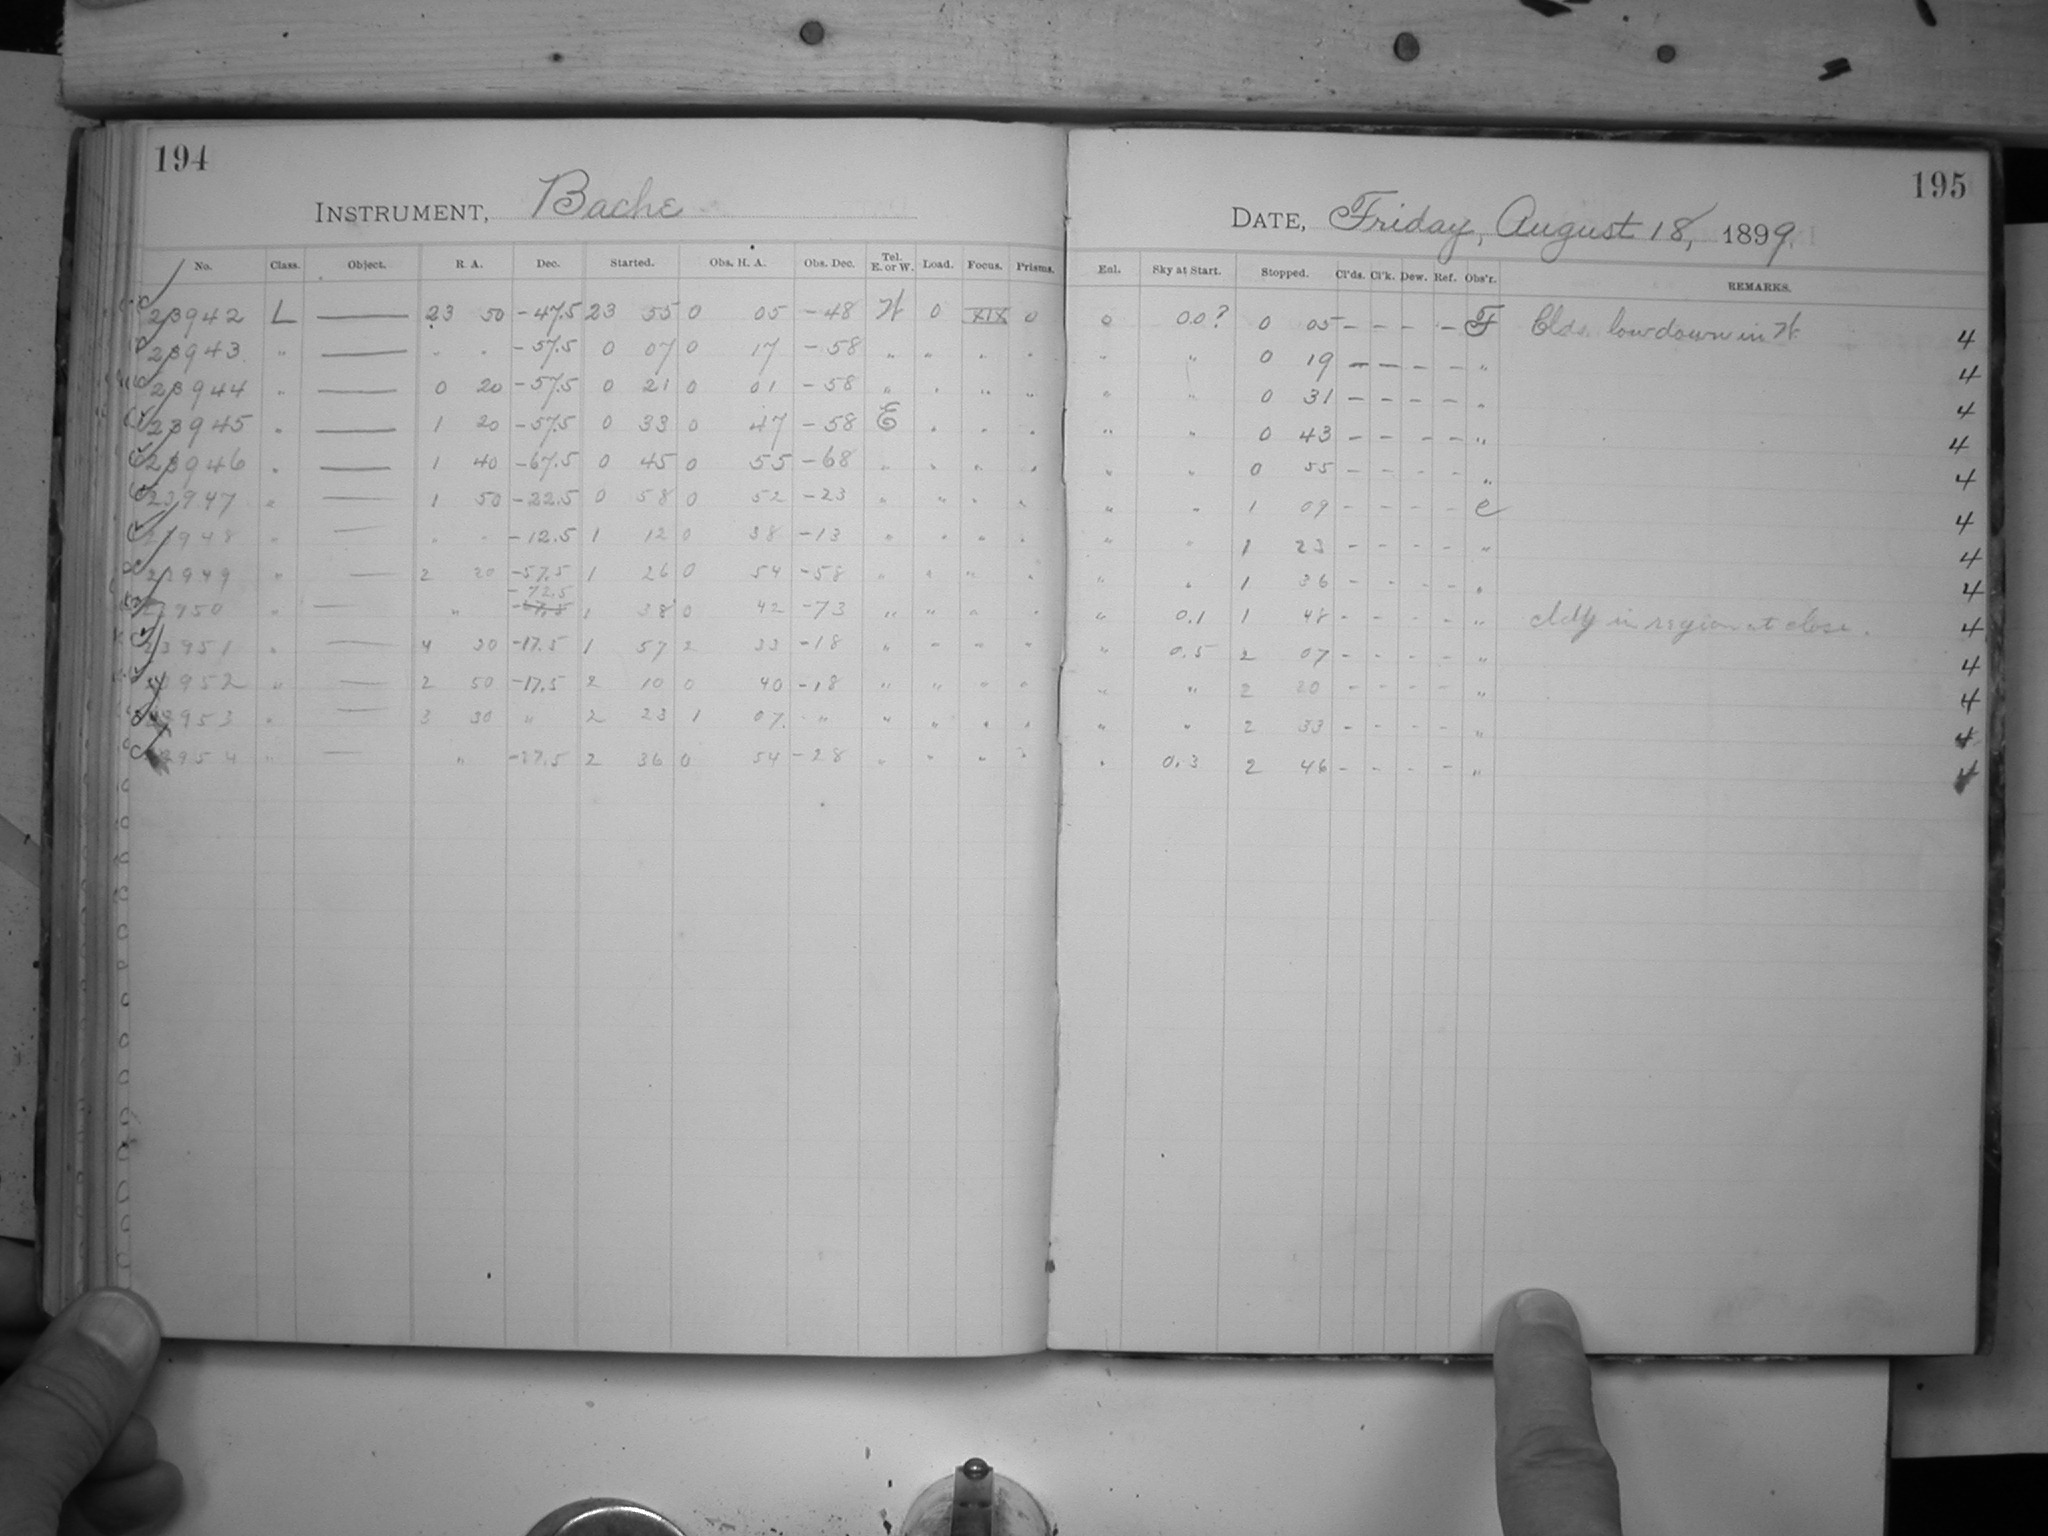 194
INSTRUMENT, Bache
No. Class. Object. R. A. Dec. Started. Obs. H. A. Obs. Dec. Tel. E. or W. Load. Focus. Prisms.
23942 L —— 23 50 -47.5 23 55 0 05 -48 W 0 XIX 0
23943 " —— " " -57.5 0 07 0 17 -58 " " " "
23944 " —— 0 20 -57.5 0 21 0 01 -58 " " " "
23945 " —— 1 20 -57.5 0 33 0 47 -58 E " " "
23946 " —— 1 40 -67.5 0 45 0 55 -68 " " " "
23947 " —— 1 50 -22.5 0 58 0 52 -23 " " " "
23948 " —— " " -12.5 1 12 0 38 -13 " " " "
23949 " —— 2 20 -57.5 1 26 0 54 -58 " " " "
-72.5
23950 " —— " 1 38 0 42 -73 " " " "
23951 " —— 4 30 -17.5 1 57 2 33 -18 " " " "
23952 " —— 2 50 -17.5 2 10 0 40 -18 " " " "
23953 " —— 3 30 " 2 23 1 07 " " " " "
23954 " —— " -27.5 2 36 0 54 -28 " " " "
195
DATE, Friday, August 18, 1899.
Enl. Sky at Start. Stopped. Cl'ds. Cl'k. Dew. Ref. Obs'r. REMARKS.
0 0.0? 0 05 - - - - F Clds. low down in W. 4
" " 0 19 - - - - " 4
" " 0 31 - - - - " 4
" " 0 43 - - - - " 4
" " 0 55 - - - - " 4
" " 1 09 - - - - C 4
" " 1 23 - - - - " 4
" " 1 36 - - - - " 4
" 0.1 1 48 - - - - " cldy in region at close. 4
" 0.5 2 07 - - - - " 4
" " 2 20 - - - - " 4
" " 2 33 - - - - " 4
" 0.3 2 46 - - - - " 4